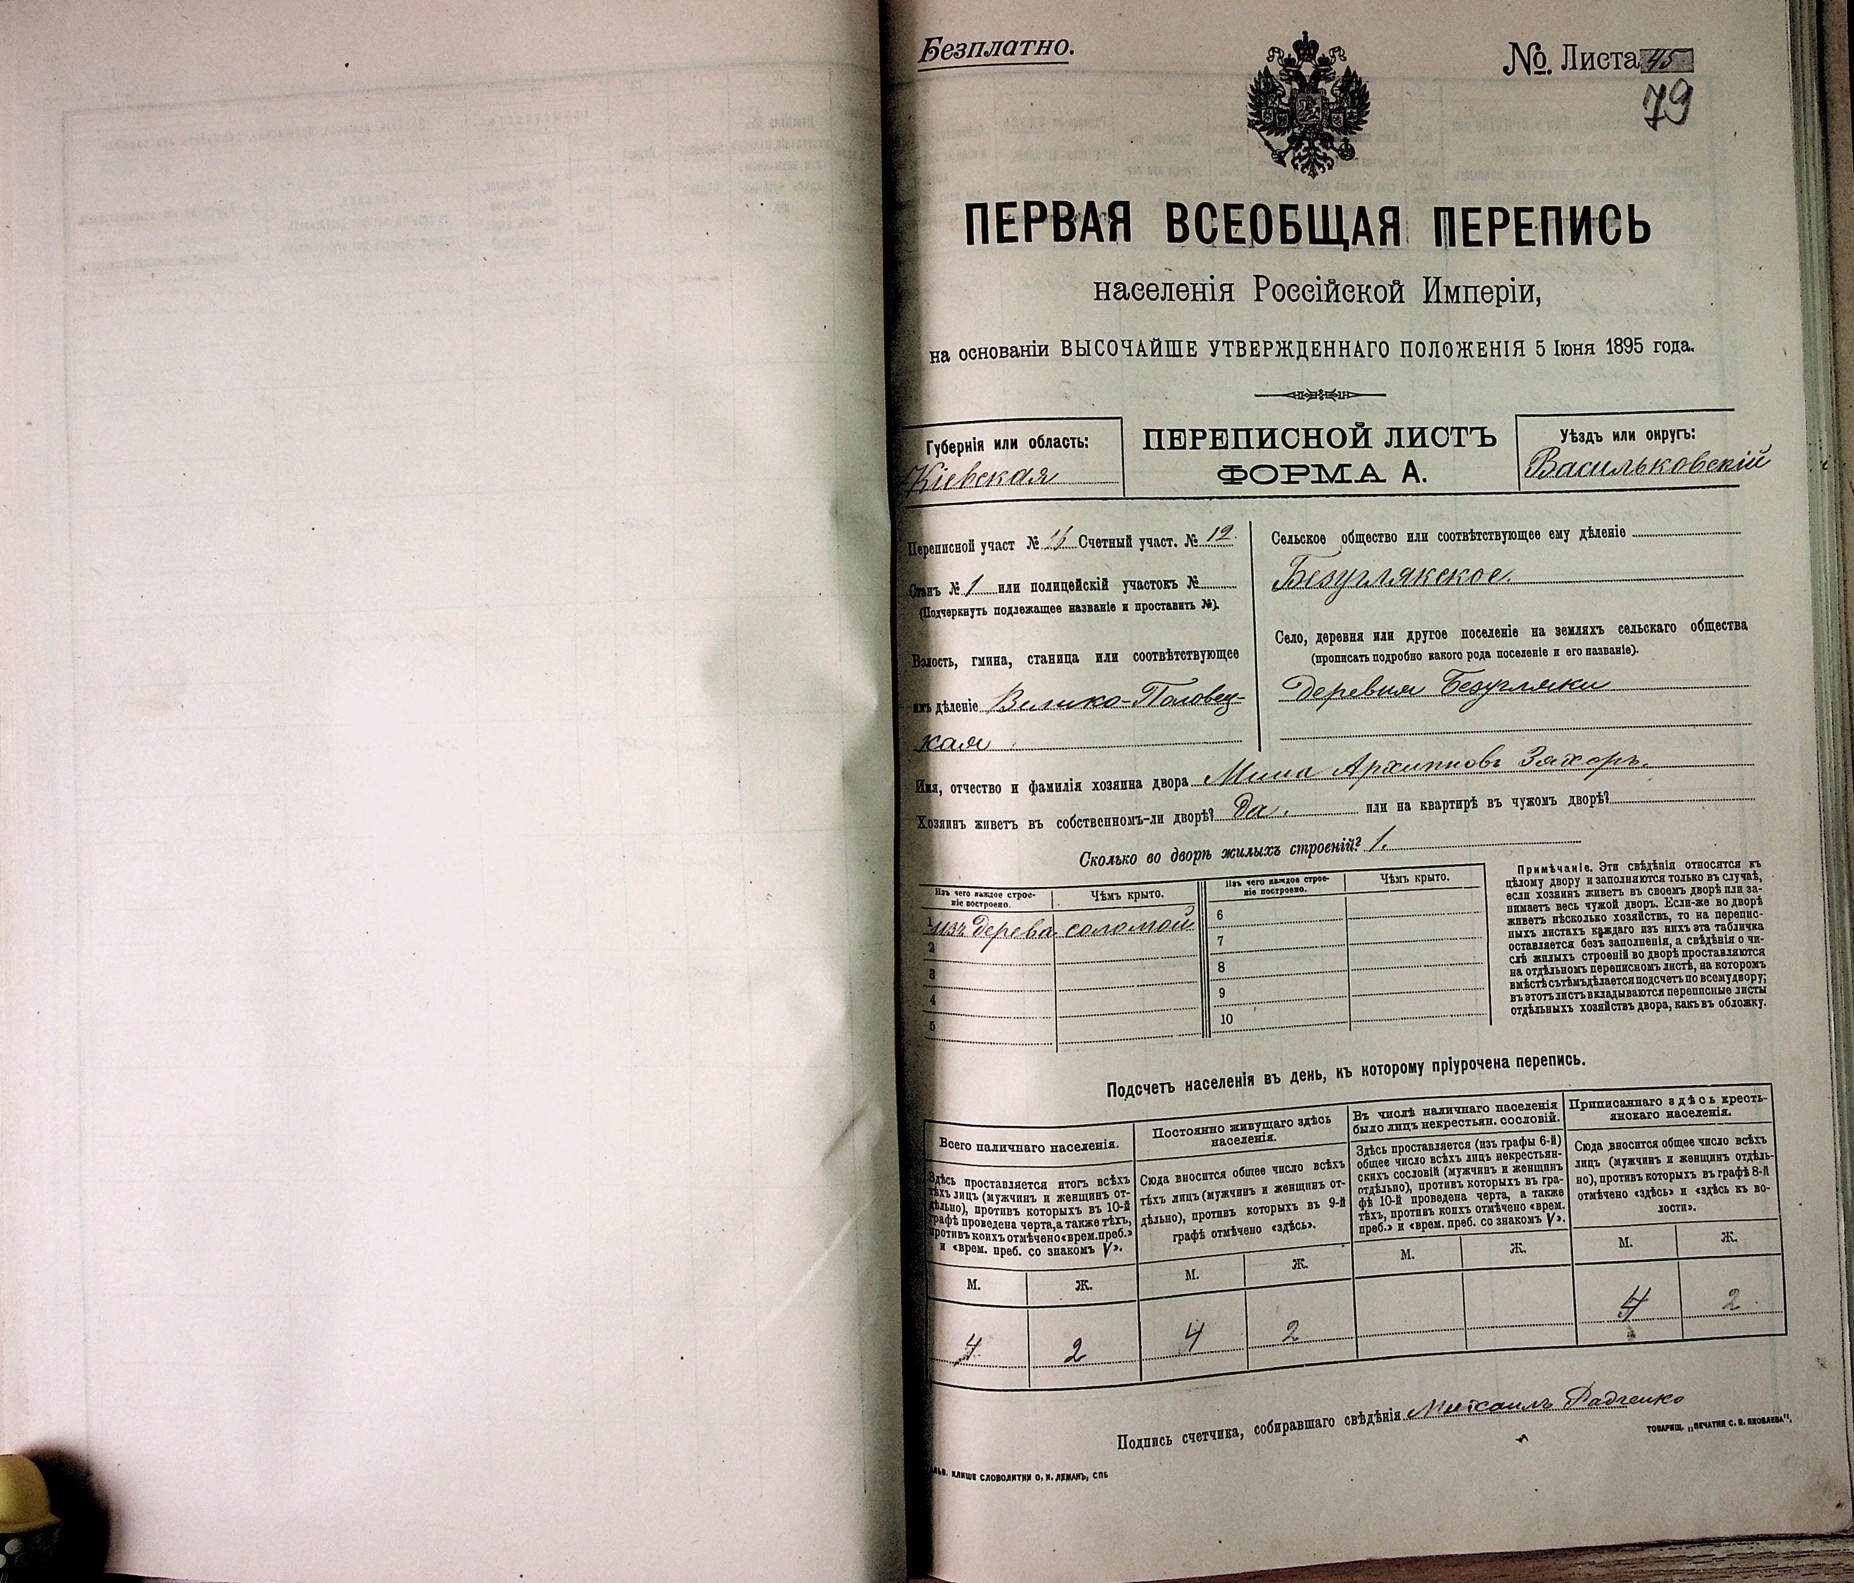 Безплатно.
№. Листа 45
79
ПЕРВАЯ ВСЕОБЩАЯ ПЕРЕПИСЬ
населенія Россійской Имперіи,
на основаніи ВЫСОЧАЙШЕ УТВЕРЖДЕННАГО ПОЛОЖЕНІЯ 5 Іюня 1895 года.
Губернія или область:
Кіевская
ПЕРЕПИСНОЙ ЛИСТЪ
ФОРМА А.
Уѣздъ или округъ:
Васильковскій
Переписной участ № Счетный участ. № 12.
Станъ № 1 или полицейскій участокъ №
(Подчеркнуть подлежащее названіе и проставить №).
Волость, гмина, станица или соотвѣтствующее
имъ дѣленіе Велико-Половец-
кая
Сельское общество или соотвѣтствующее ему дѣленіе
Безуглякское.
Село, деревня или другое поселеніе на земляхъ сельскаго общества
(прописать подробно какого рода поселеніе и его названіе).
деревня Безугляки
Имя, отчество и фамилія хозяина двора Мина Архиповъ Захоръ.
Хозяинъ живетъ въ собственномъ-ли дворѣ? да. или на квартирѣ въ чужомъ дворѣ?
Сколько во дворѣ жилыхъ строеній? 1.
Изъ чего каждое строе-
ніе построено.
Чѣмъ крыто.
Изъ чего каждое строе-
ніе построено.
Чѣмъ крыто.
1 изъ дерева соломой
2
3
4
5
6
7
8
9
10
Примѣчаніе. Эти свѣдѣнія относятся къ
цѣлому двору и заполняются только въ случаѣ,
если хозяинъ живетъ въ своемъ дворѣ или за-
нимаетъ весь чужой дворъ. Если-же во дворѣ
живетъ нѣсколько хозяйствъ, то на перепис-
ныхъ листахъ каждаго изъ нихъ эта табличка
оставляется безъ заполненія, а свѣдѣнія о чи-
слѣ жилыхъ строеній во дворѣ проставляются
на отдѣльномъ переписномъ листѣ, на которомъ
вмѣстѣ съ тѣмъ дѣлается подсчетъ по всему двору;
въ этотъ листъ вкладываются переписные листы
отдѣльныхъ хозяйствъ двора, какъ въ обложку.
Подсчетъ населенія въ день, къ которому пріурочена перепись.
Всего наличнаго населенія.
Здѣсь проставляется итогъ всѣхъ
тѣхъ лицъ (мужчинъ и женщинъ от-
дѣльно), противъ которыхъ въ 10-й
графѣ проведена черта, а также тѣхъ,
противъ коихъ отмѣчено «врем. преб.»
и «врем. преб. со знакомъ V».
М. Ж.
4 2
Постоянно живущаго здѣсь
населенія.
Сюда вносится общее число всѣхъ
тѣхъ лицъ (мужчинъ и женщинъ от-
дѣльно), противъ которыхъ въ 9-й
графѣ отмѣчено «здѣсь».
М. Ж.
4 2
Въ числѣ наличнаго населенія
было лицъ некрестьян. сословій.
Здѣсь проставляется (изъ графы 6-й)
общее число всѣхъ лицъ некрестьян-
скихъ сословій (мужчинъ и женщинъ
отдѣльно), противъ которыхъ въ гра-
фѣ 10-й проведена черта, а также
тѣхъ, противъ коихъ отмѣчено «врем.
преб.» и «врем. преб. со знакомъ V».
М. Ж.
Приписаннаго здѣсь кресть-
янскаго населенія.
Сюда вносится общее число всѣхъ
лицъ (мужчинъ и женщинъ отдѣль-
но), противъ которыхъ въ графѣ 8-й
отмѣчено «здѣсь» и «здѣсь къ во-
лости».
М. Ж.
4 2
Подпись счетчика, собиравшаго свѣдѣнія Михаилъ Радченко
КЛИШЕ СЛОВОЛИТНИ О. И. ЛЕМАНЪ, СПБ
ТОВАРИЩ. „ПЕЧАТНЯ С. П. ЯКОВЛЕВА".